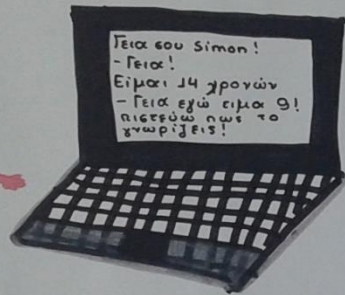 Γεια σου Simon!
- Γεια!
Είμαι 14 χρονών
- Γεια εγώ ειμα 9!
πιστεύω πως το
γνωρίζεις!